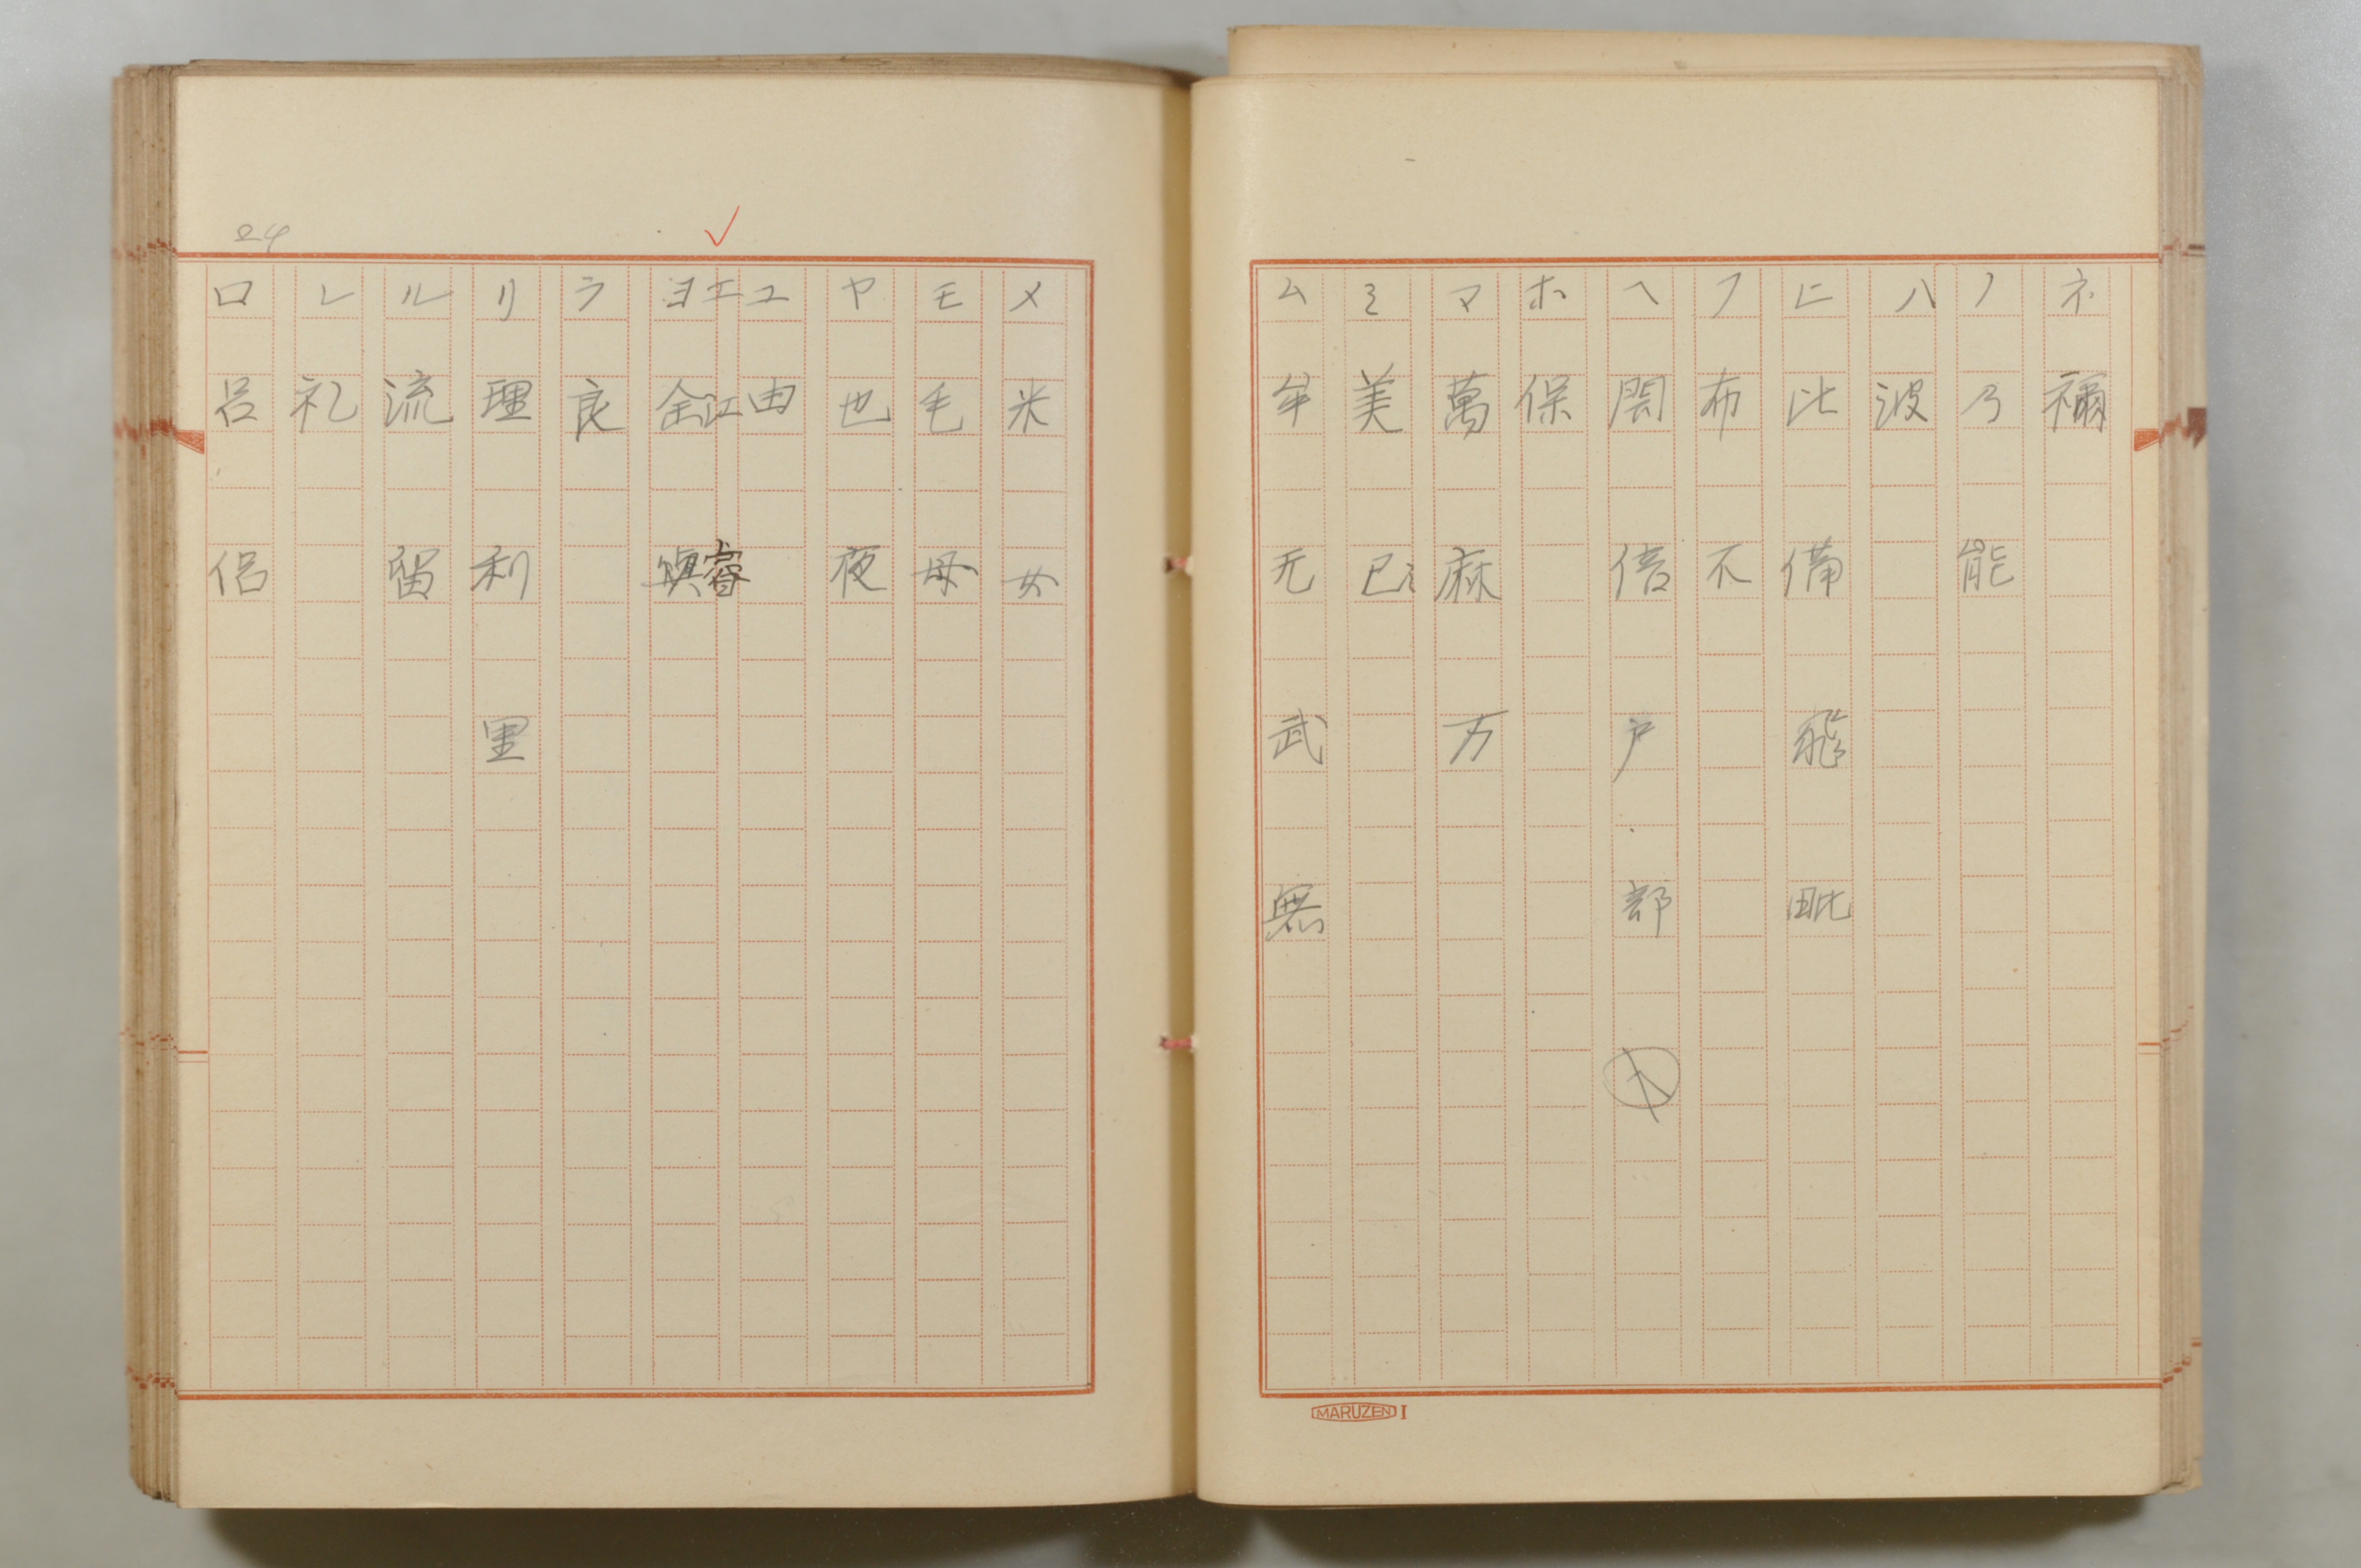 ネ 禰
ノ 乃 能
ハ 波
ヒ 比 備 飛 毗
フ 布 不
ヘ 閇 倍 戸 部
ホ 保
マ 萬 麻 万
ミ 美 已ミ
ム 牟 无 武 無
MARUZEN I
メ 米 女
モ 毛 母
ヤ 也 夜
ユ 由
エ 江 睿
ヨ 余 與
ラ 良
リ 理 利 里
ル 流 留
レ 礼
ロ 呂 侶
24